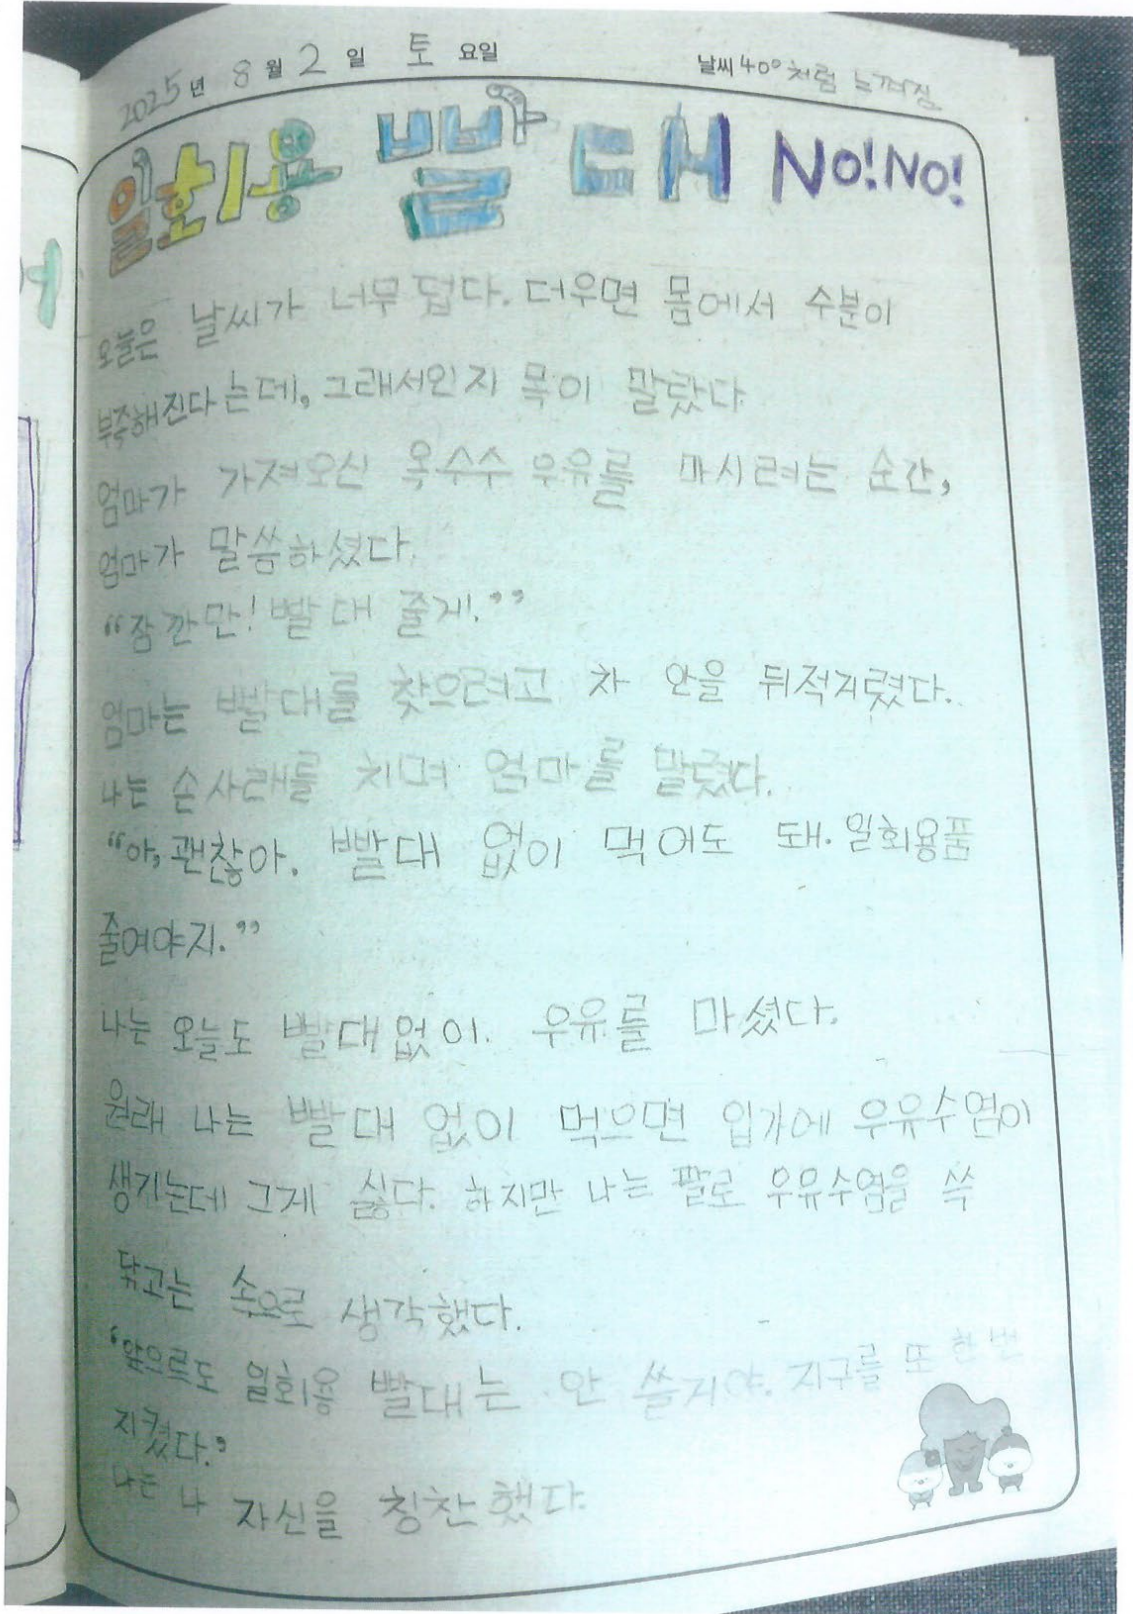 2025년 8월 2일 토요일 날씨 40°처럼 느껴짐
일회용 빨대 No! No!
오늘은 날씨가 너무 덥다. 더우면 몸에서 수분이
부족해진다는데, 그래서인지 목이 말랐다.
엄마가 가져오신 옥수수 우유를 마시려는 순간,
엄마가 말씀하셨다.
“잠깐만! 빨대 줄게!.”
엄마는 빨대를 찾으려고 차 안을 뒤적거렸다.
나는 손사래를 치며 엄마를 말렸다.
“아, 괜찮아. 빨대 없이 먹어도 돼. 일회용품
줄여야지.”
나는 오늘도 빨대 없이. 우유를 마셨다.
원래 나는 빨대 없이 먹으면 입가에 우유수염이
생기는데 그게 싫다. 하지만 나는 팔로 우유수염을 쓱
닦고는 속으로 생각했다.
‘앞으로도 일회용 빨대는 안 쓸거야. 지구를 또 한 번
지켰다.’
나는 나 자신을 칭찬했다.